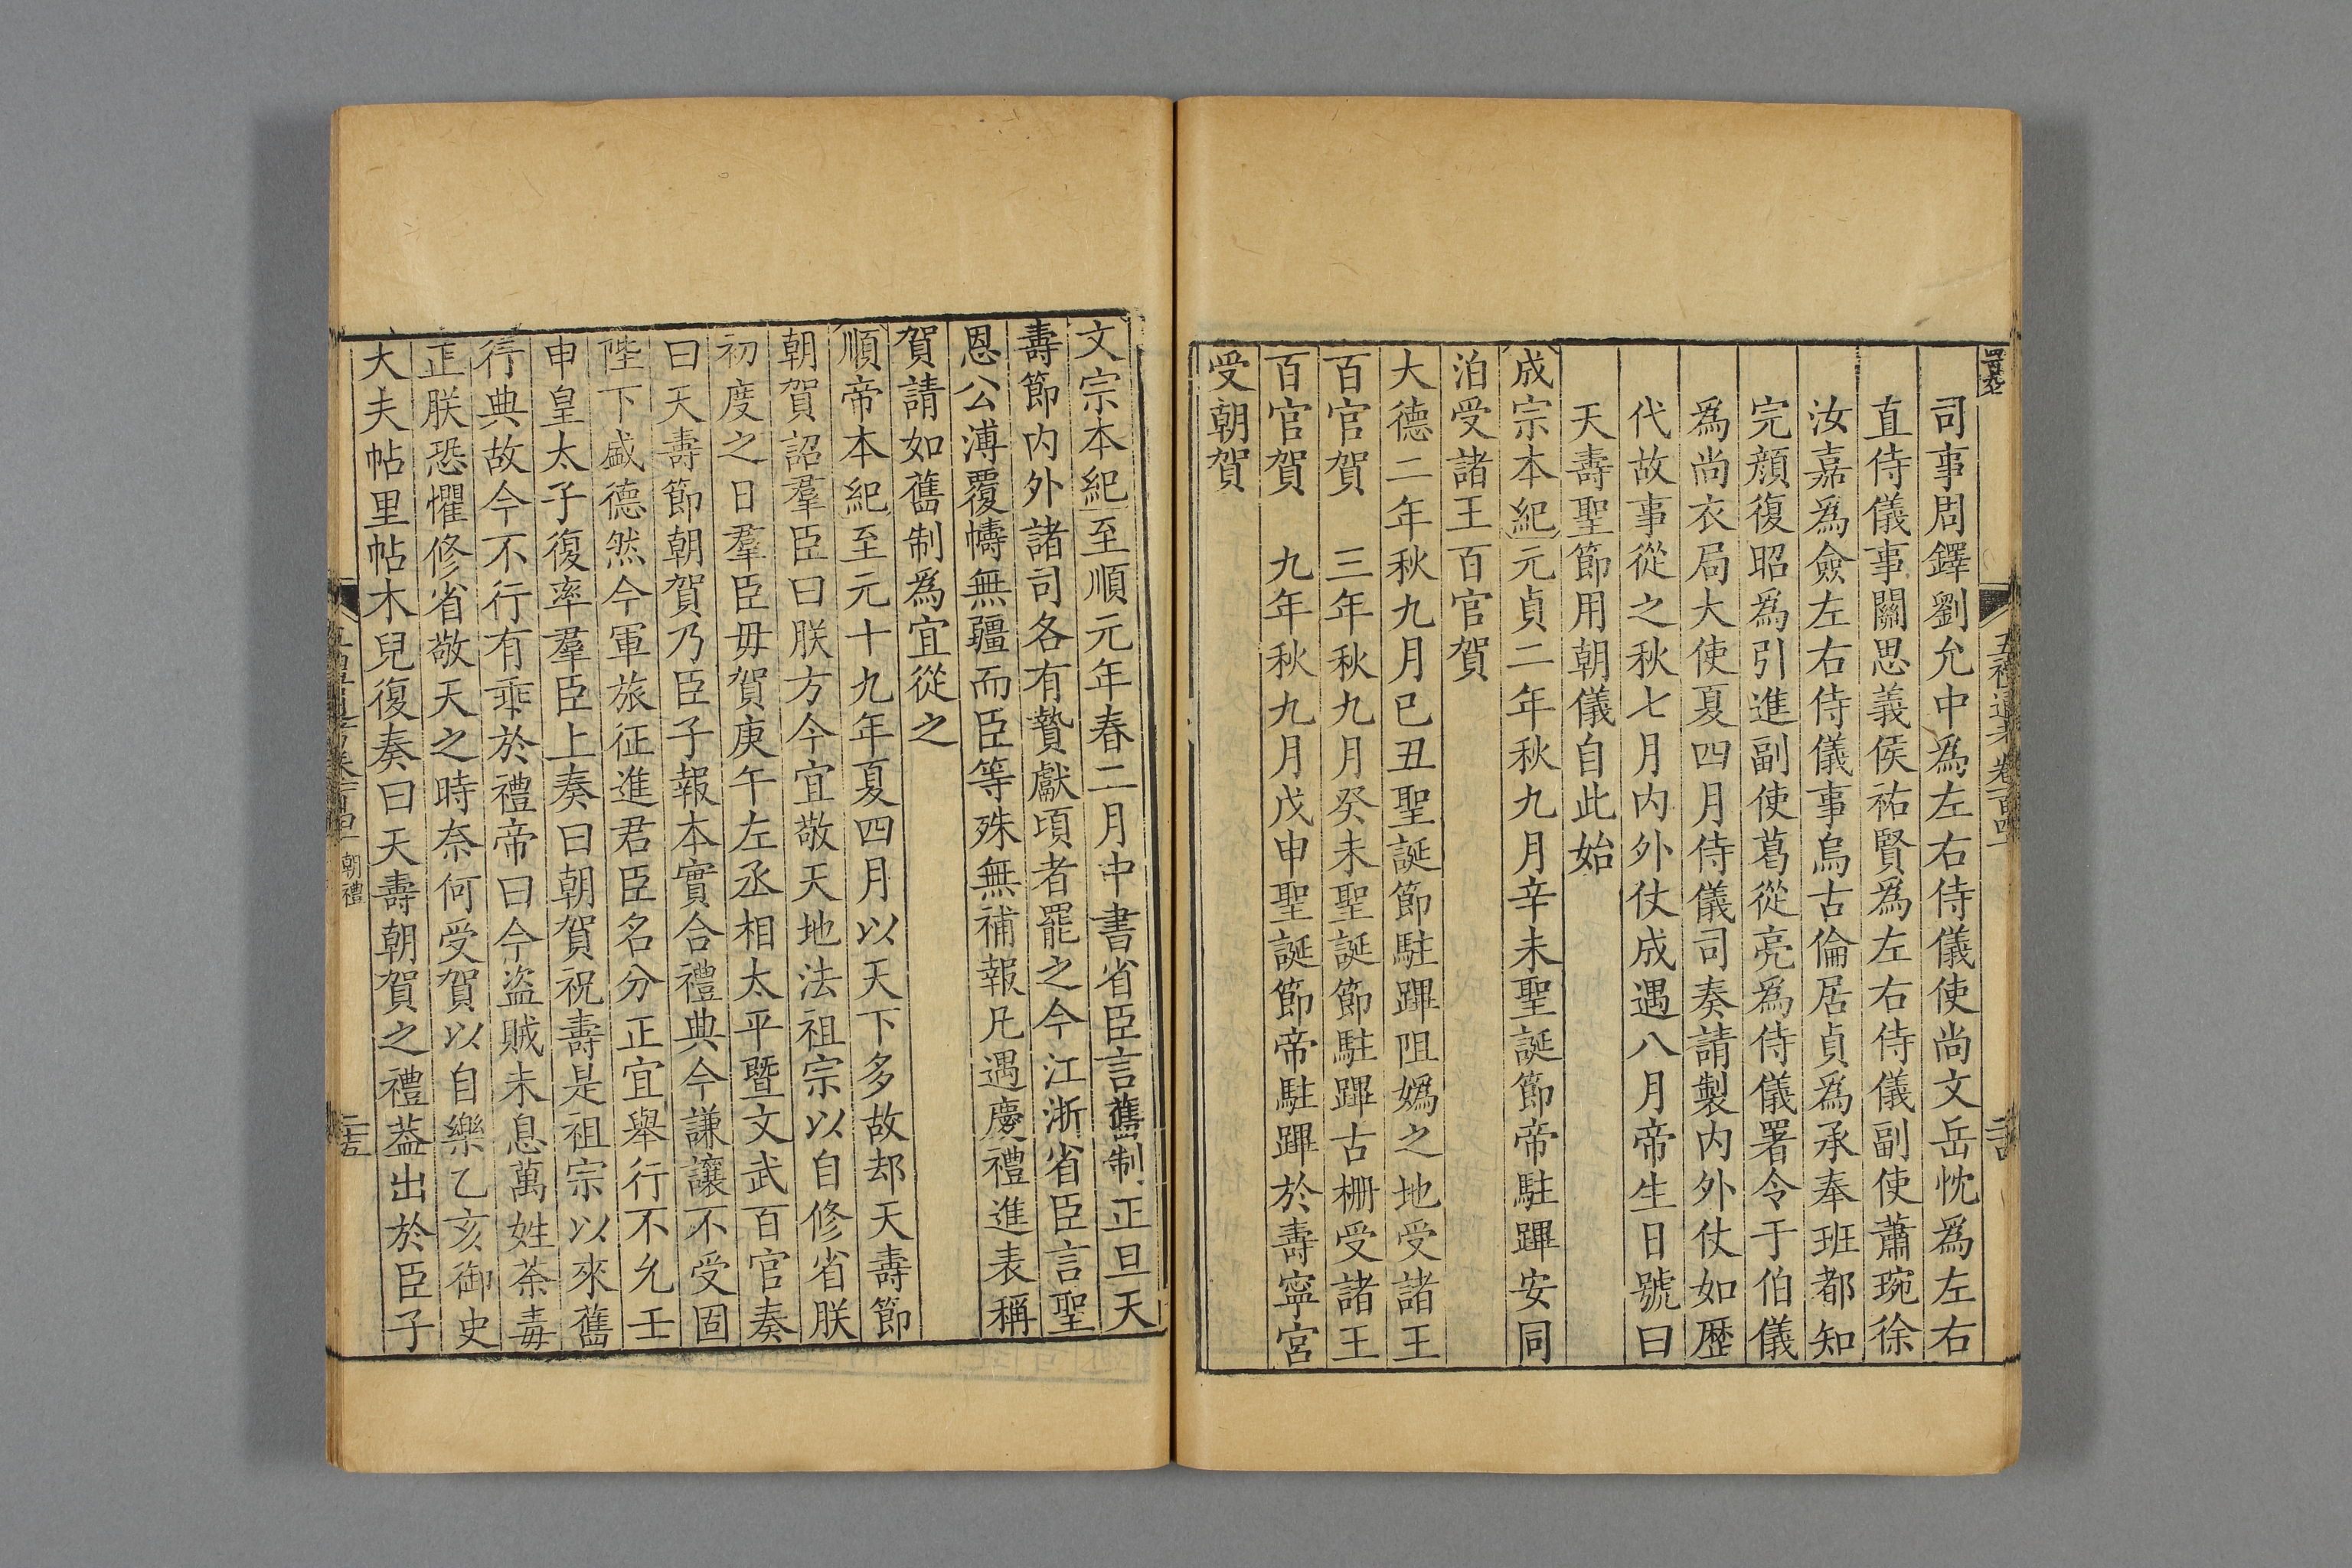 司事周鐸劉允中爲左右侍儀使尚文岳忱爲左右
直侍儀事關思義侯祐賢爲左右侍儀副使蕭琬徐
汝嘉爲僉左右侍儀事烏古倫居貞爲承奉班都知
完顔復昭爲引進副使葛從亮爲侍儀署令于伯儀
爲尚衣局大使夏四月侍儀司奏請製内外仗如歷
代故事從之秋七月内外仗成遇八月帝生日號曰
天壽聖節用朝儀自此始
成宗本紀元貞二年秋九月辛未聖誕節帝駐蹕安同
泊受諸王百官賀
大德二年秋九月已丑聖誕節駐蹕阻嬀之地受諸王
百官賀　三年秋九月癸未聖誕節駐蹕古柵受諸王
百官賀　九年秋九月戊申聖誕節帝駐蹕於壽寧宮
受朝賀
文宗本紀至順元年春二月中書省臣言舊制正旦天
壽節内外諸司各有贄獻頃者罷之今江浙省臣言聖
恩公溥覆幬無疆而臣等殊無補報凡遇慶禮進表稱
賀請如舊制爲宜從之
順帝本紀至元十九年夏四月以天下多故却天壽節
朝賀詔羣臣曰朕方今宜敬天地法祖宗以自修省朕
初度之日羣臣毋賀庚午左丞相太平暨文武百官奏
曰天壽節朝賀乃臣子報本實合禮典今謙讓不受固
陛下盛德然今軍旅征進君臣名分正宜舉行不允壬
申皇太子復率羣臣上奏曰朝賀祝壽是祖宗以來舊
行典故今不行有乖於禮帝曰今盜賊未息萬姓荼毒
正朕恐懼修省敬天之時奈何受賀以自樂乙亥御史
大夫帖里帖木兒復奏曰天壽朝賀之禮葢出於臣子
朝禮